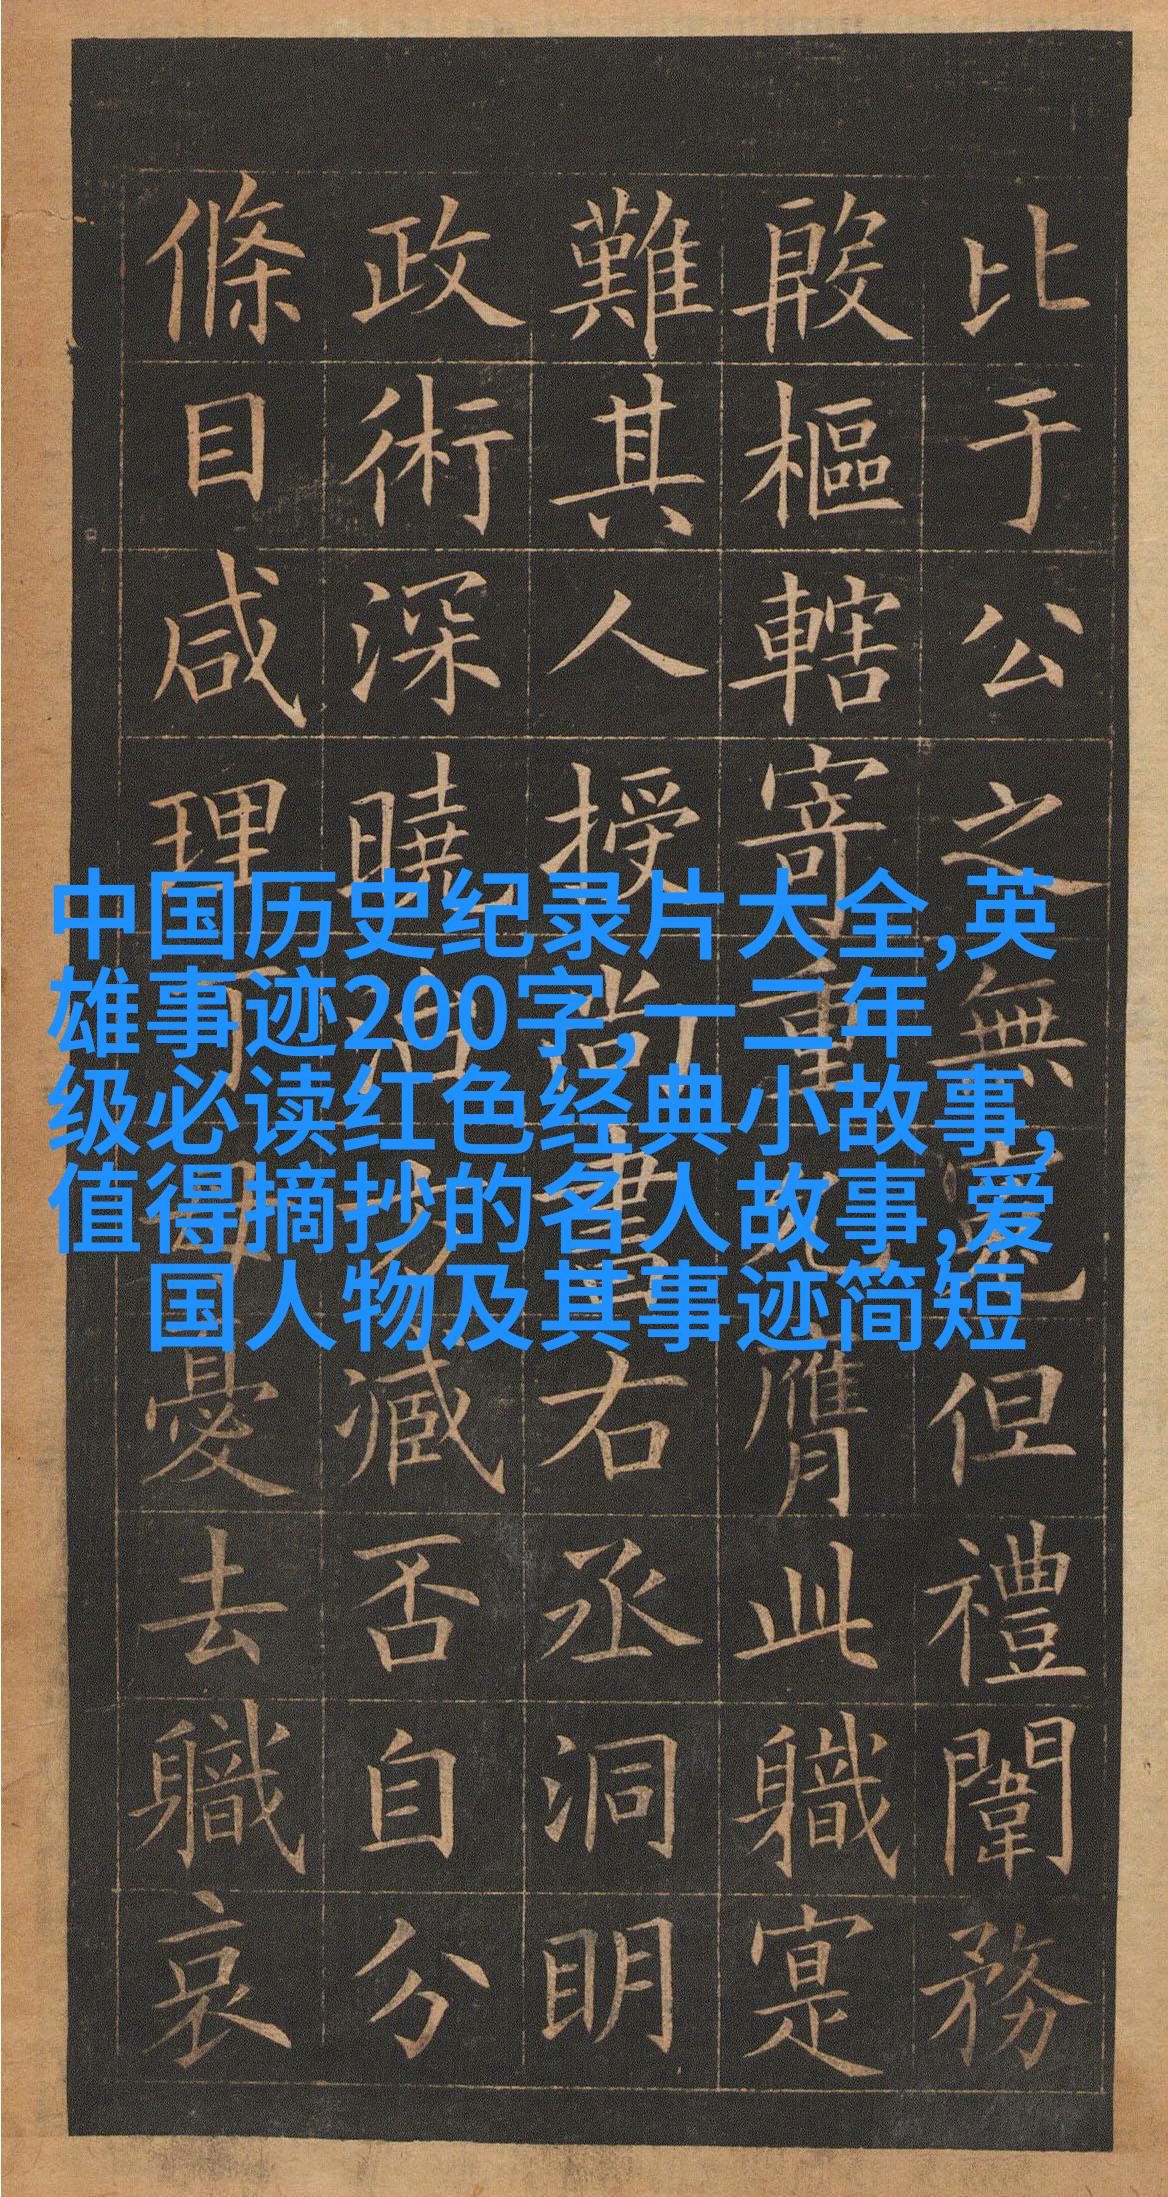 中国历史纪录片大全,英
雄事迹200字,一二年
级必读红色经典小故事,
值得摘抄的名人故事,爱
国人物及其事迹简短
比于公之無但禮闈務
殿樞轄寄重膺此職寔
難其人授尚書右丞洞明
政術深曉治方臧否自分
條目咸理母憂去職哀